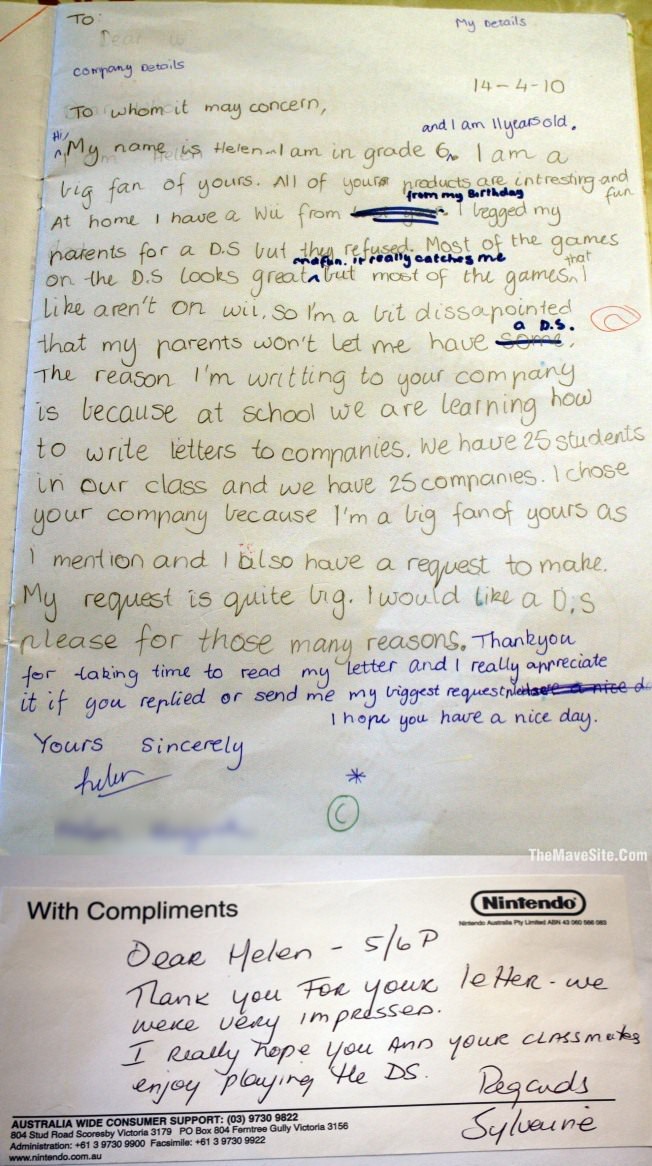 TO:
My Details
Dear
Company Details
14-4-10
To whom it may concern,
and I am 11 years old.
Hi,
My name is Helen. I am in grade 6, I am a
big fan of yours. All of your products are intresting and
fun
from my Birthday
At home I have a Wii from I begged my
parents for a D.S but they refused. Most of the games
it really catches me
that
on the D.S looks great but most of the games I
like aren't on wii, so I'm a bit dissapointed
a D.S.
that my parents won't let me have some.
The reason I'm writting to your company
is because at school we are learning how
to write letters to companies. We have 25 students
in our class and we have 25 companies. I chose
your company because I'm a big fan of yours as
I mention and I also have a request to make.
My request is quite big. I would like a D.S
please for those many reasons. Thankyou
for taking time to read my letter and I really appreciate
it if you replied or send me my biggest request please have a nice da
I hope you have a nice day.
Yours sincerely
helen
*
C
TheMaveSite.Com
With Compliments
Nintendo
Nintendo Australia Pty Limited ABN 43 060 566 083
Dear Helen - 5/6P
Thank you for your letter - we
were very impressed.
I really hope you and your classmates
enjoy playing the DS.
Regards
Sylvaine
AUSTRALIA WIDE CONSUMER SUPPORT: (03) 9730 9822
804 Stud Road Scoresby Victoria 3179 PO Box 804 Ferntree Gully Victoria 3156
Administration: +61 3 9730 9900 Facsimile: +61 3 9730 9922
www.nintendo.com.au